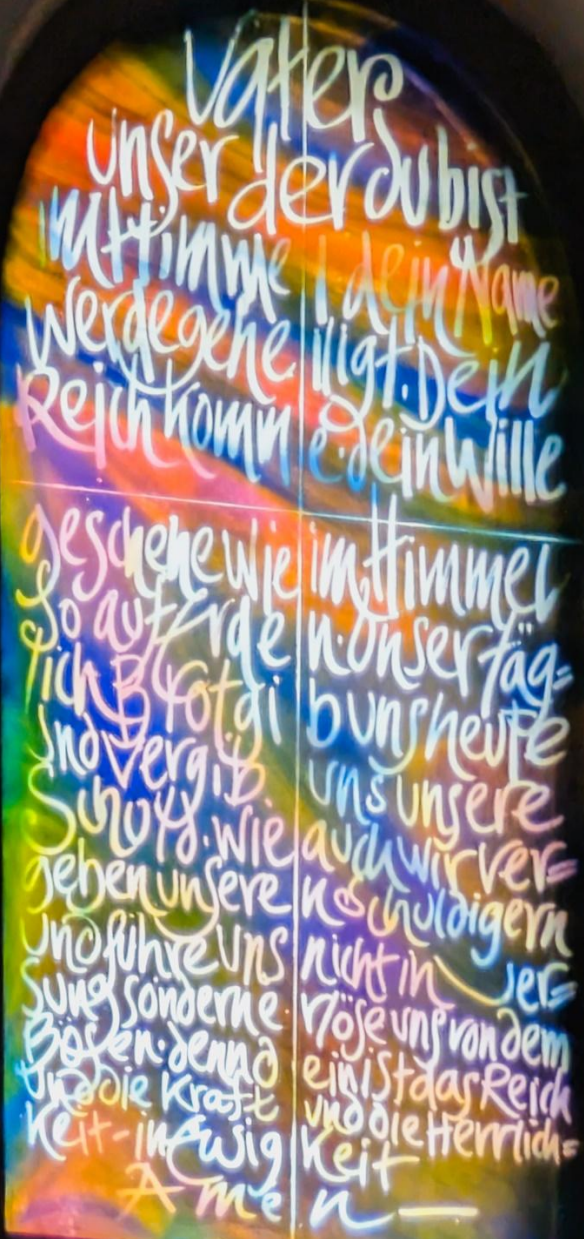 Vater
unser der du bist
im Himme l dein Name
werde gehe iligt. Dein
Reich komm e. dein Wille
geschehe wie im Himmel
So auf Erde n. Unser täg=
lich Brot gi b uns heute
und vergib uns unsere
Schuld. wie auch wir ver=
geben unsere n Schuldigern
und führe uns nicht in Ver=
Sung sondern e rlöse uns von dem
Bösen. denn d ein ist das Reich
und die Kraft und die Herrlich=
keit - in Ewig keit
Amen